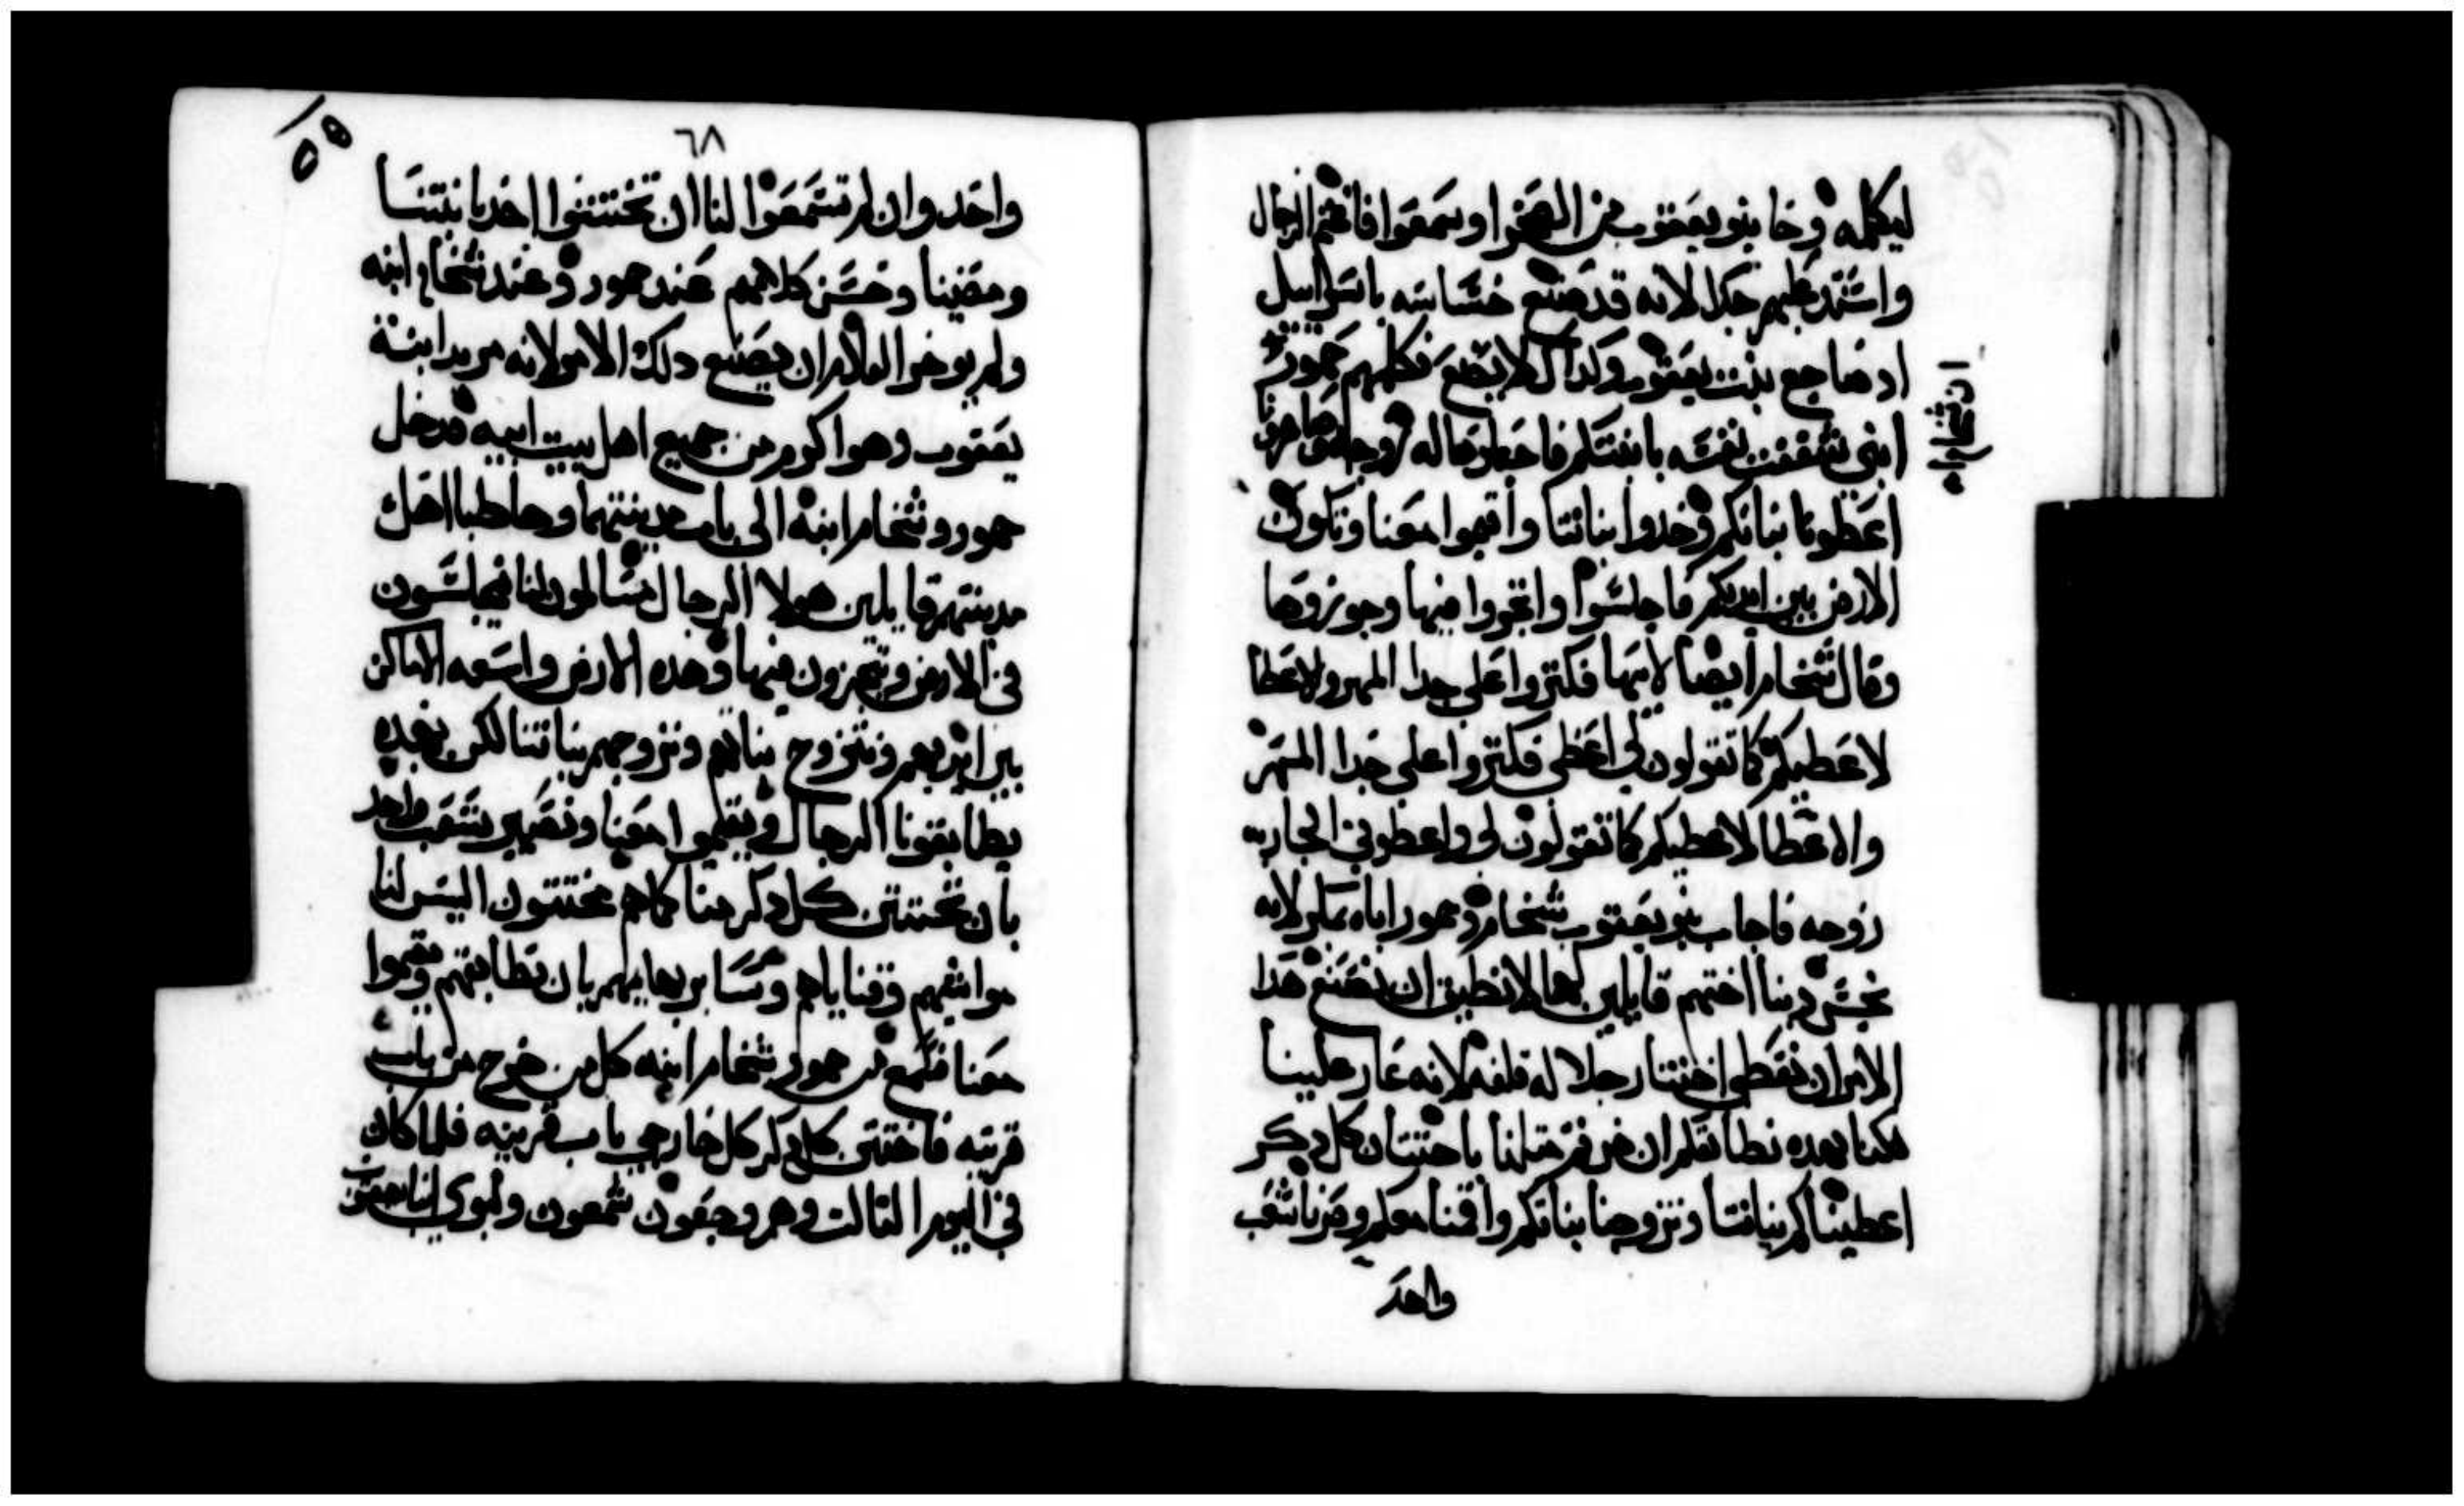 ليكلمه وجا بنو يعقوب من الصحرا وسمعوا فاغتم الرجال
واشتد عليهم جدا لانه قد صنع خساسه باسراييل
اد ضاجع بنت يعقوب وكداك لا يصنع فكلمهم حمور
ان شخام
ابني شغفت نفسه بابنتكم فاجعلوها له زوجه وصاهرونا
اعطونا بناتكم وخدوا بناتنا واقيموا معنا وتكون
الارض بين ايديكم فاجلسوا واتجروا فيها وحوزوها
وقال شخام ايضا لابيها فكتروا على جدا المهر والاعطا
لاعطيكم كما تقولون لي اعطي فكتروا علي جدا المهر
والاعطا لاعطيكم كما تقولون لي واعطوني الجاريه
زوجه فاجاب بنو يعقوب شخام وحمور اباه بمكر لانه
نجس دينا اختهم قايلين لهما لا نطيق ان نصنع هدا
الامر ان نعطي اختنا رجلا له قلفه لانه عار علينا
لكنا بهده نطابقكم ان صرتم متلنا باختتان كل دكر
اعطيناكم بناتنا وتزوجنا بناتكم واقمنا معكم وصرنا شعب
واحد
٦٨
واحد وان لم تسمعوا لنا ان تختتنوا اخدنا بنتنا
ومضينا وحسن كلامهم عند حمور وعند شخام ابنه
ولم يوخر الغلام ان يصنع دلك الامر لانه مريد ابنة
يعقوب وهو اكرم من جميع اهل بيت ابيه فدخل
حمور وشخام ابنه الى باب مدينتهما وخاطبا اهل
مدينتهم قايلين هولا الرجال مسالمون لنا فيجلسون
في الارض ويتجرون فيها وهده الارض واسعه الاماكن
بين ايديهم ونتزوج بناتهم ونزوجهم بناتنا لكن بهده
يطابقونا الرجال ويقيموا معنا ونصير شعب واحد
بان تختتن كل دكر منا كما هم مختتنون اليس لنا
مواشيهم وقناياهم وساير بهايمهم بان نطابقهم ويقيموا
معنا فسمع من حمور وشخام ابنه كل من خرج من باب
قريته فاختتن كل دكر كل خارجي باب قريته فلما كان
في اليوم التالت وهم وجعون شمعون ولوي ابنا يعقوب